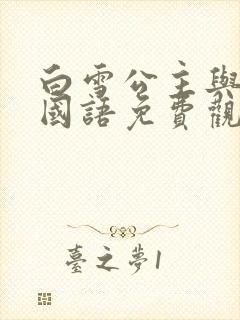 白雪公主與
國語免費觀
臺之夢1